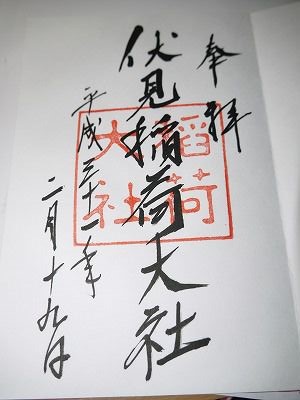 奉拝
伏見稲荷大社
稲荷
大社
平成三十一年
二月十九日